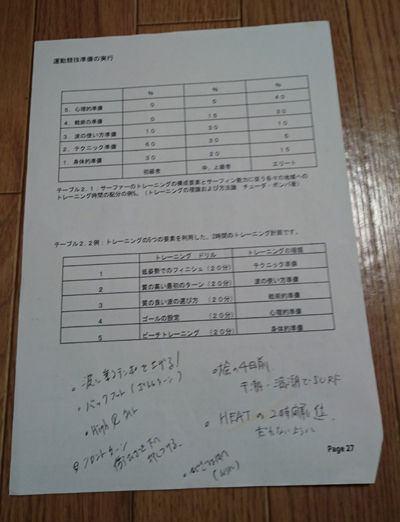 運動競技準備の実行
% % %
5. 心理的準備 0 5 40
4. 戦術の準備 0 15 30
3. 波の使い方準備 10 30 10
2. テクニック準備 60 30 5
1. 身体的準備 30 20 15
初級者 中、上級者 エリート
テーブル2.1:サーファーのトレーニングの構成要素とサーフィン能力に従う各々の地域への
トレーニング時間の配分の例%。(トレーニングの理論および方法論 チューダ・ボンパ著)
テーブル2.2例:トレーニングの5つの要素を利用した、2時間のトレーニング計画です。
トレーニング ドリル トレーニングの種類
1 低姿勢でのフィニッシュ(20分) テクニック準備
2 質の高い最初のターン(20分) 波の使い方準備
3 質の良い波の選び方(20分) 戦術的準備
4 ゴールの設定(20分) 心理的準備
5 ビーチトレーニング(20分) 身体的準備
・バックフット
・High
・フロントターン
の4日前
干潮・満潮でSURF
・HEATの2時間
Page 27